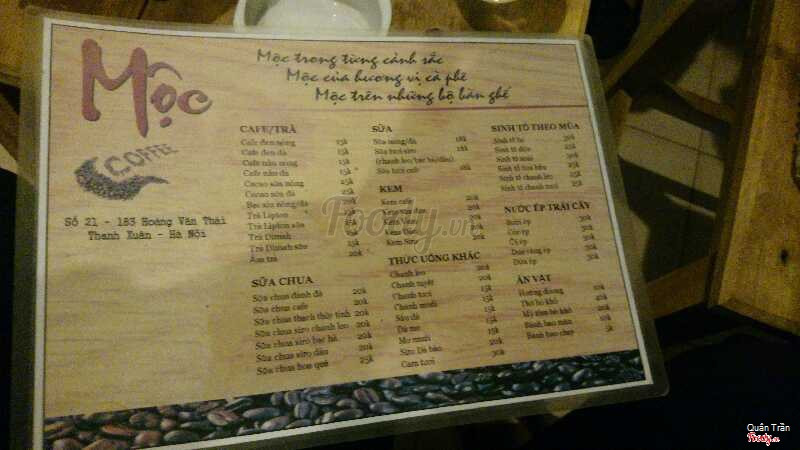 Mộc
COFFEE
Số 21 - 183 Hoàng Văn Thái
Thanh Xuân - Hà Nội
Mộc trong từng cảnh sắc
Mộc của hương vị cà phê
Mộc trên những bộ bàn ghế
CAFE/TRÀ
Cafe đen nóng 15k
Cafe đen đá 15k
Cafe nâu nóng 25k
Cafe nâu đá 25k
Cacao sữa nóng 25k
Cacao sữa đá 25k
Bạc sỉu nóng/đá 20k
Trà Lipton
Trà Lipton sữa
Trà Dimah 15k
Trà Dimah sữa 15k
Ấm trà 20k
SỮA CHUA
Sữa chua đánh đá 20k
Sữa chua cafe 20k
Sữa chua thạch thủy tinh 20k
Sữa chua siro chanh leo 20k
Sữa chua siro bạc hà 20k
Sữa chua siro dâu 20k
Sữa chua hoa quả 25k
SỮA
Sữa nóng/đá 18k
Sữa tươi siro 18k
(chanh leo/bạc hà/dâu)
Sữa tươi cafe
KEM
Kem cafe 20k
Kem
Kem
Kem
Kem Siro 20k
THỨC UỐNG KHÁC
Chanh leo 20k
Chanh tuyết 20k
Chanh tươi 15k
Chanh muối 15k
Sấu đá 15k
Dá me 15k
Mơ muối 15k
Siro Đá bào 20k
Cam tươi 30k
SINH TỐ THEO MÙA
Sinh tố bơ 30k
Sinh tố
Sinh tố xoài 30k
Sinh tố hoa bưởi 25k
Sinh tố chanh leo 25k
Sinh tố chanh tươi 25k
NƯỚC ÉP TRÁI CÂY
Bưởi ép 30k
Cóc ép 30k
Ổi ép 30k
Dưa vàng ép 30k
Dứa ép 30k
ĂN VẶT
Hướng dương 10k
Thịt bò khô 40k
Mỳ tôm bò khô 20k
Bánh bao mặn
Bánh bao chay 5k
Foody.vn
Quân Trần
Foody.vn